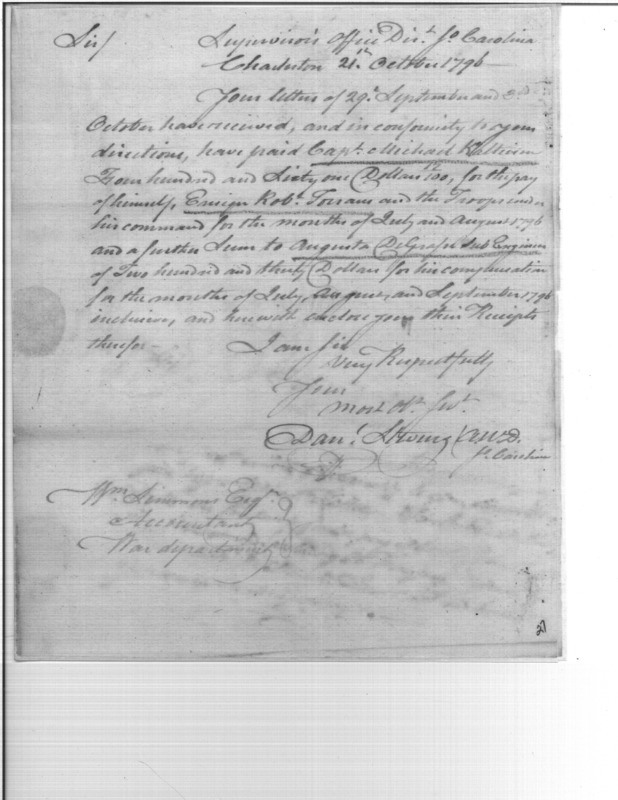 Sir/ Supervisor's Office Dist. So Carolina
Charleston 21st October 1796
Your letters of 29th September and 3d
October have received, and in conformity to your
directions, have paid Capt. Michael Kalteisen
Four hundred and Sixty one Dollars for the pay
of himself, Ensign Robt. Torrans and the Troops under
his command for the months of July and August 1796
and a further Sum to Augusta DeGrasse Sub Engineer
of Two hundred and thirty Dollars for his compensation
for the months of July, August, and September 1796
inclusive, and herewith enclose you their Receipts
therefor —
I am Sir
Very Respectfully
Your
most Ob. Svt.
Danl. Stevens
So. Carolina
Wm. Simmons Esqr.
Accountant
War department
27